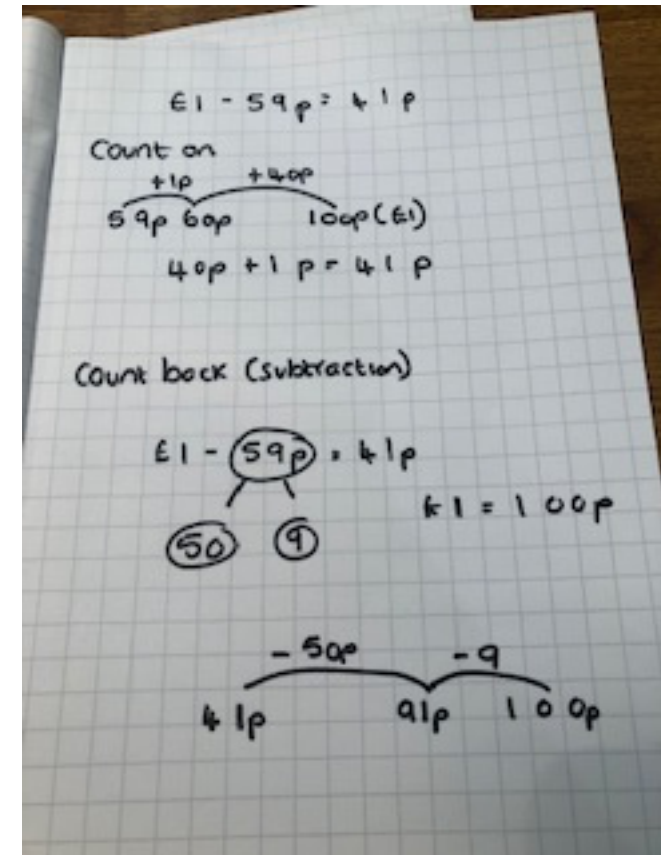 £1 - 59p = 41p
Count on
+1p +40p
59p 60p 100p (£1)
40p + 1p = 41p
Count back (subtraction)
£1 - 59p = 41p
£1 = 100p
50 9
- 50p - 9
41p 91p 100p